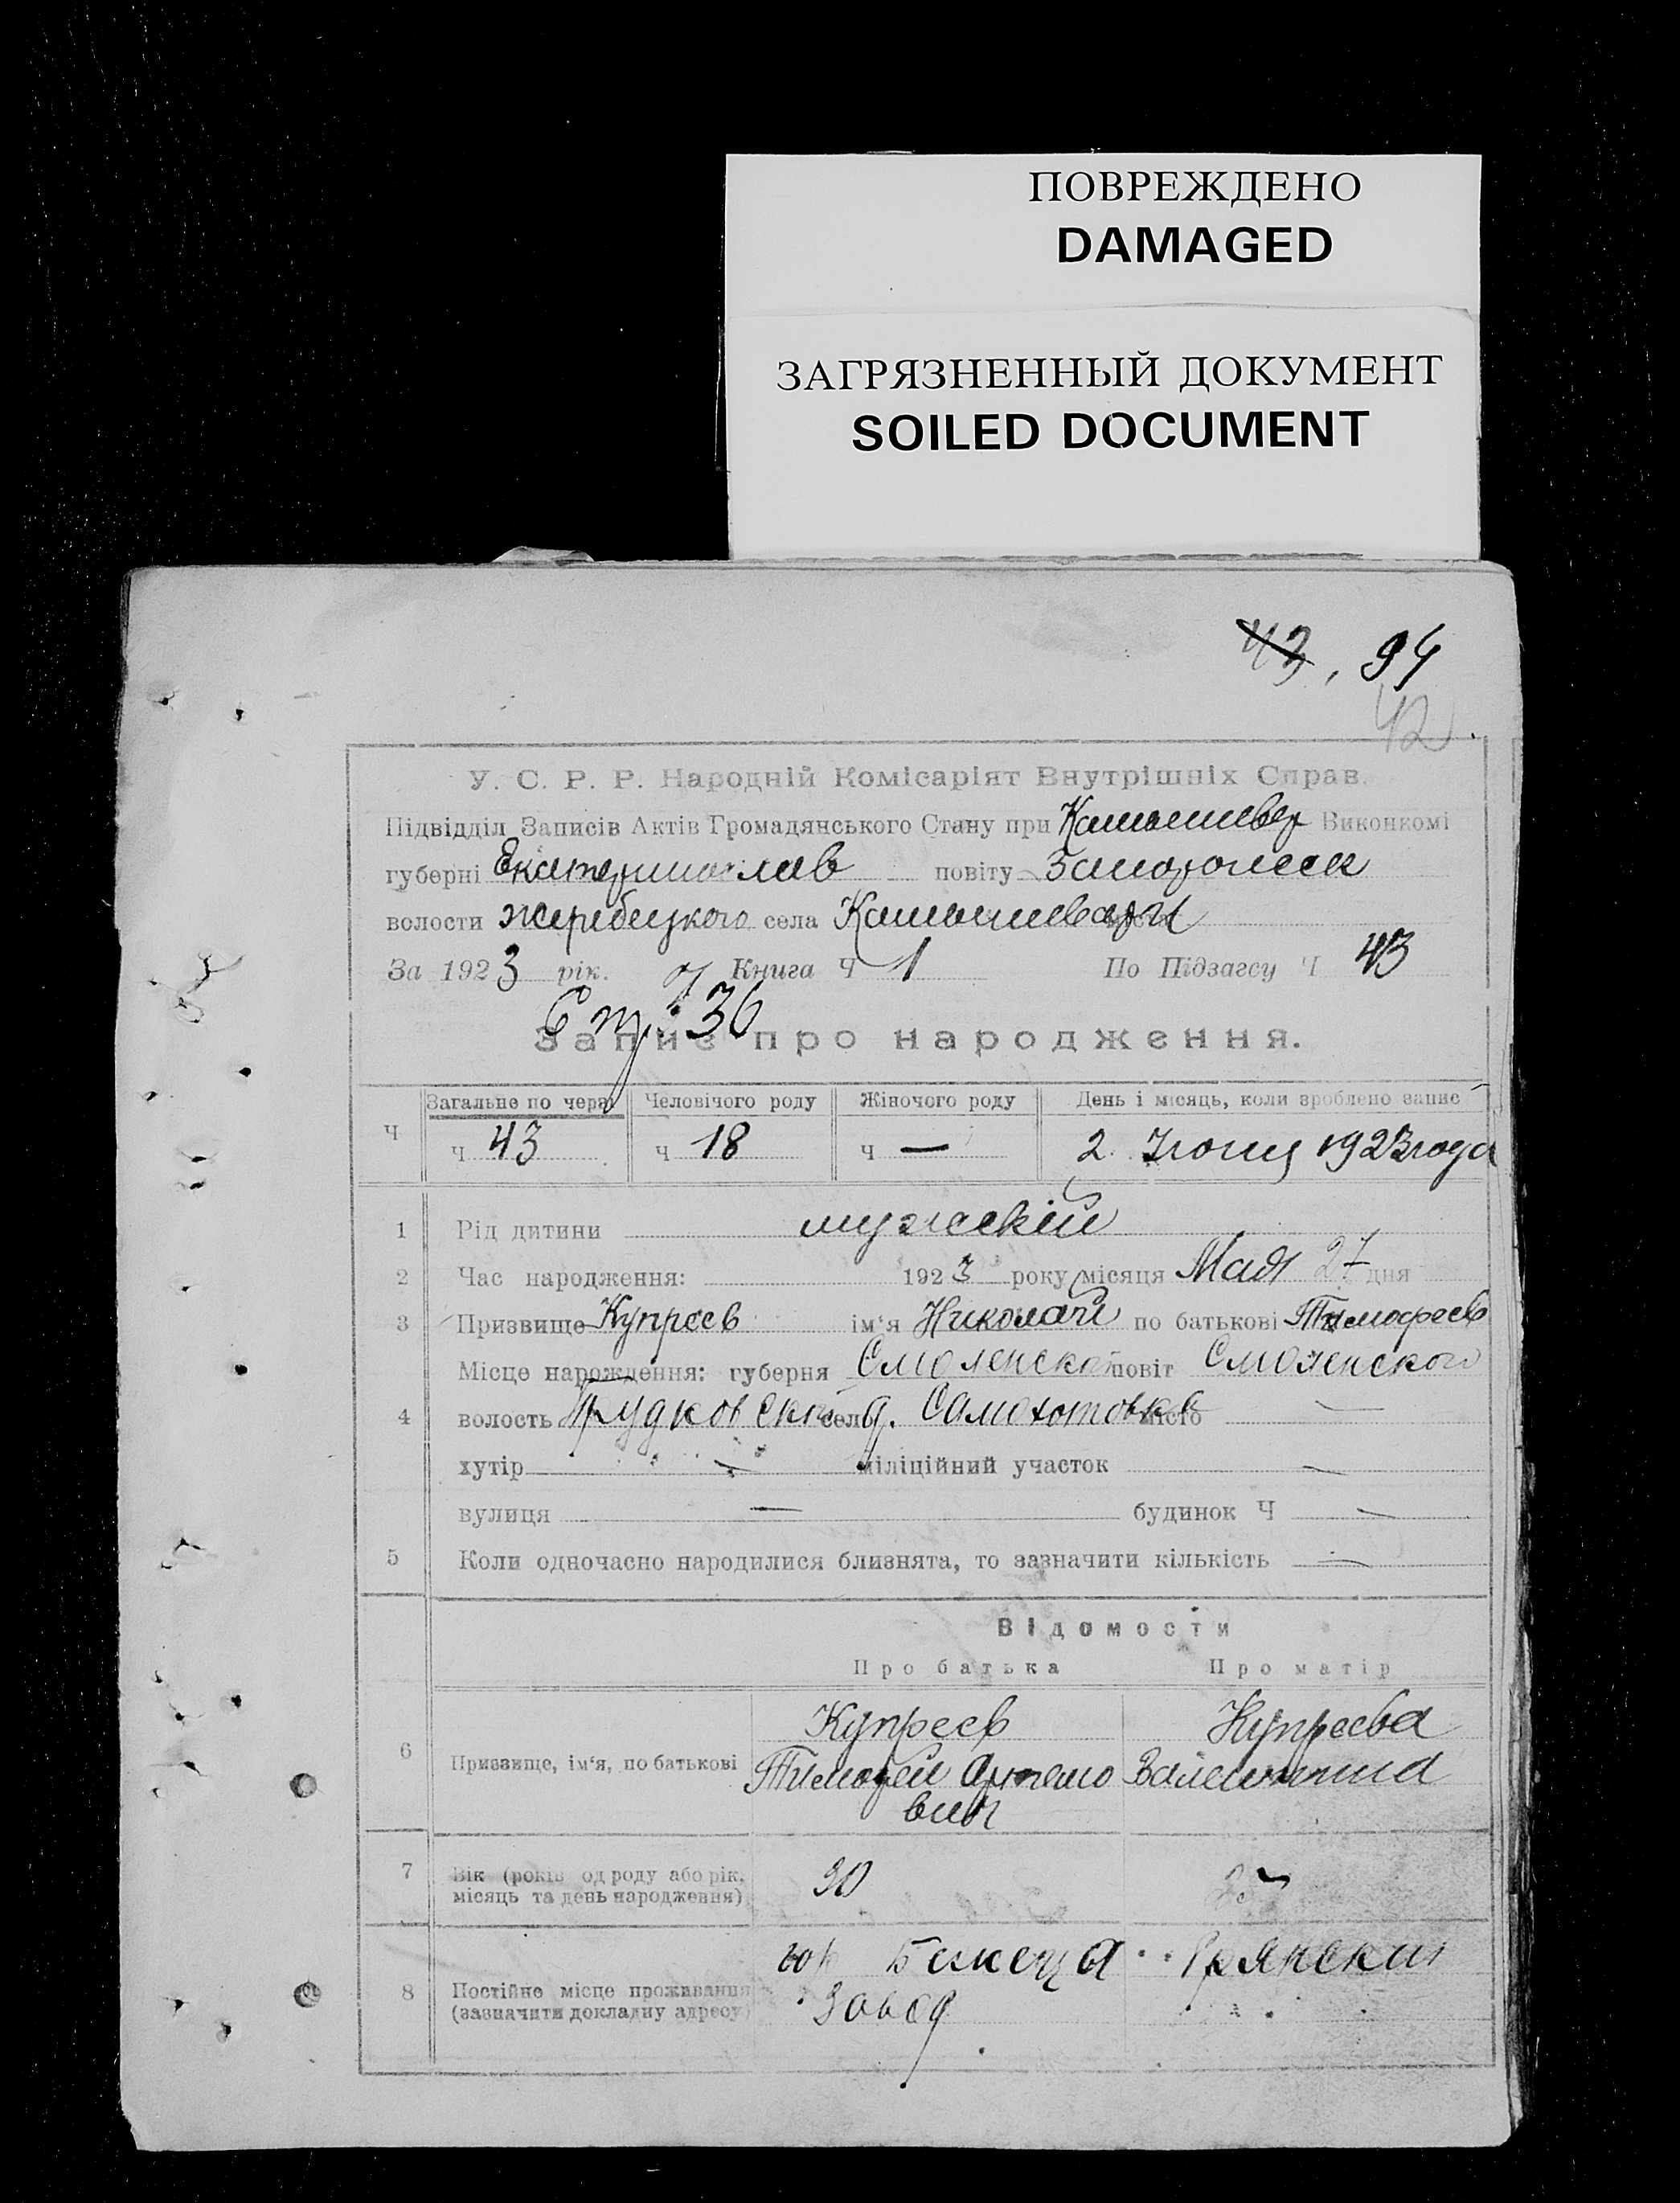 ПОВРЕЖДЕНО
DAMAGED
ЗАГРЯЗНЕННЫЙ ДОКУМЕНТ
SOILED DOCUMENT
43, 94
42
У. С. Р. Р. Народній Комісаріят Внутрішніх Справ.
Підвідділ Записів Актів Громадянського Стану при Камышевах Виконкомі
губерні Екатеринослав повіту Запорожск
волости жеребецкого села Камышевахи
За 1923 рік. Книга Ч 1 По Підзагсу Ч 43
Стр 36
Запис про народження.
Ч Загальне по черзі Человічого роду Жіночого роду День і місяць, коли зроблено запис
ч 43 ч 18 ч — 2. Июня 1923 года
1 Рід дитини мужскій
2 Час народження: 1923 року місяця Мая 27 дня
3 Призвище Купреев ім'я Николай по батькові Тимофеев
Місце народження: губерня Смоленской повіт Смоленского
4 волость село д. місто —
хутір — міліційний участок —
вулиця — будинок Ч —
5 Коли одночасно народилися близнята, то зазначити кількість —
Відомости
Про батька Про матір
Купреев Купреева
6 Призвище, ім'я, по батькові Тимофей Артемо Валентина
вич
7 Вік (років од роду або рік, місяць та день народження) 30 25
гор Бежеца Брянский
8 Постійне місце проживання (зазначити докладну адресу) завод